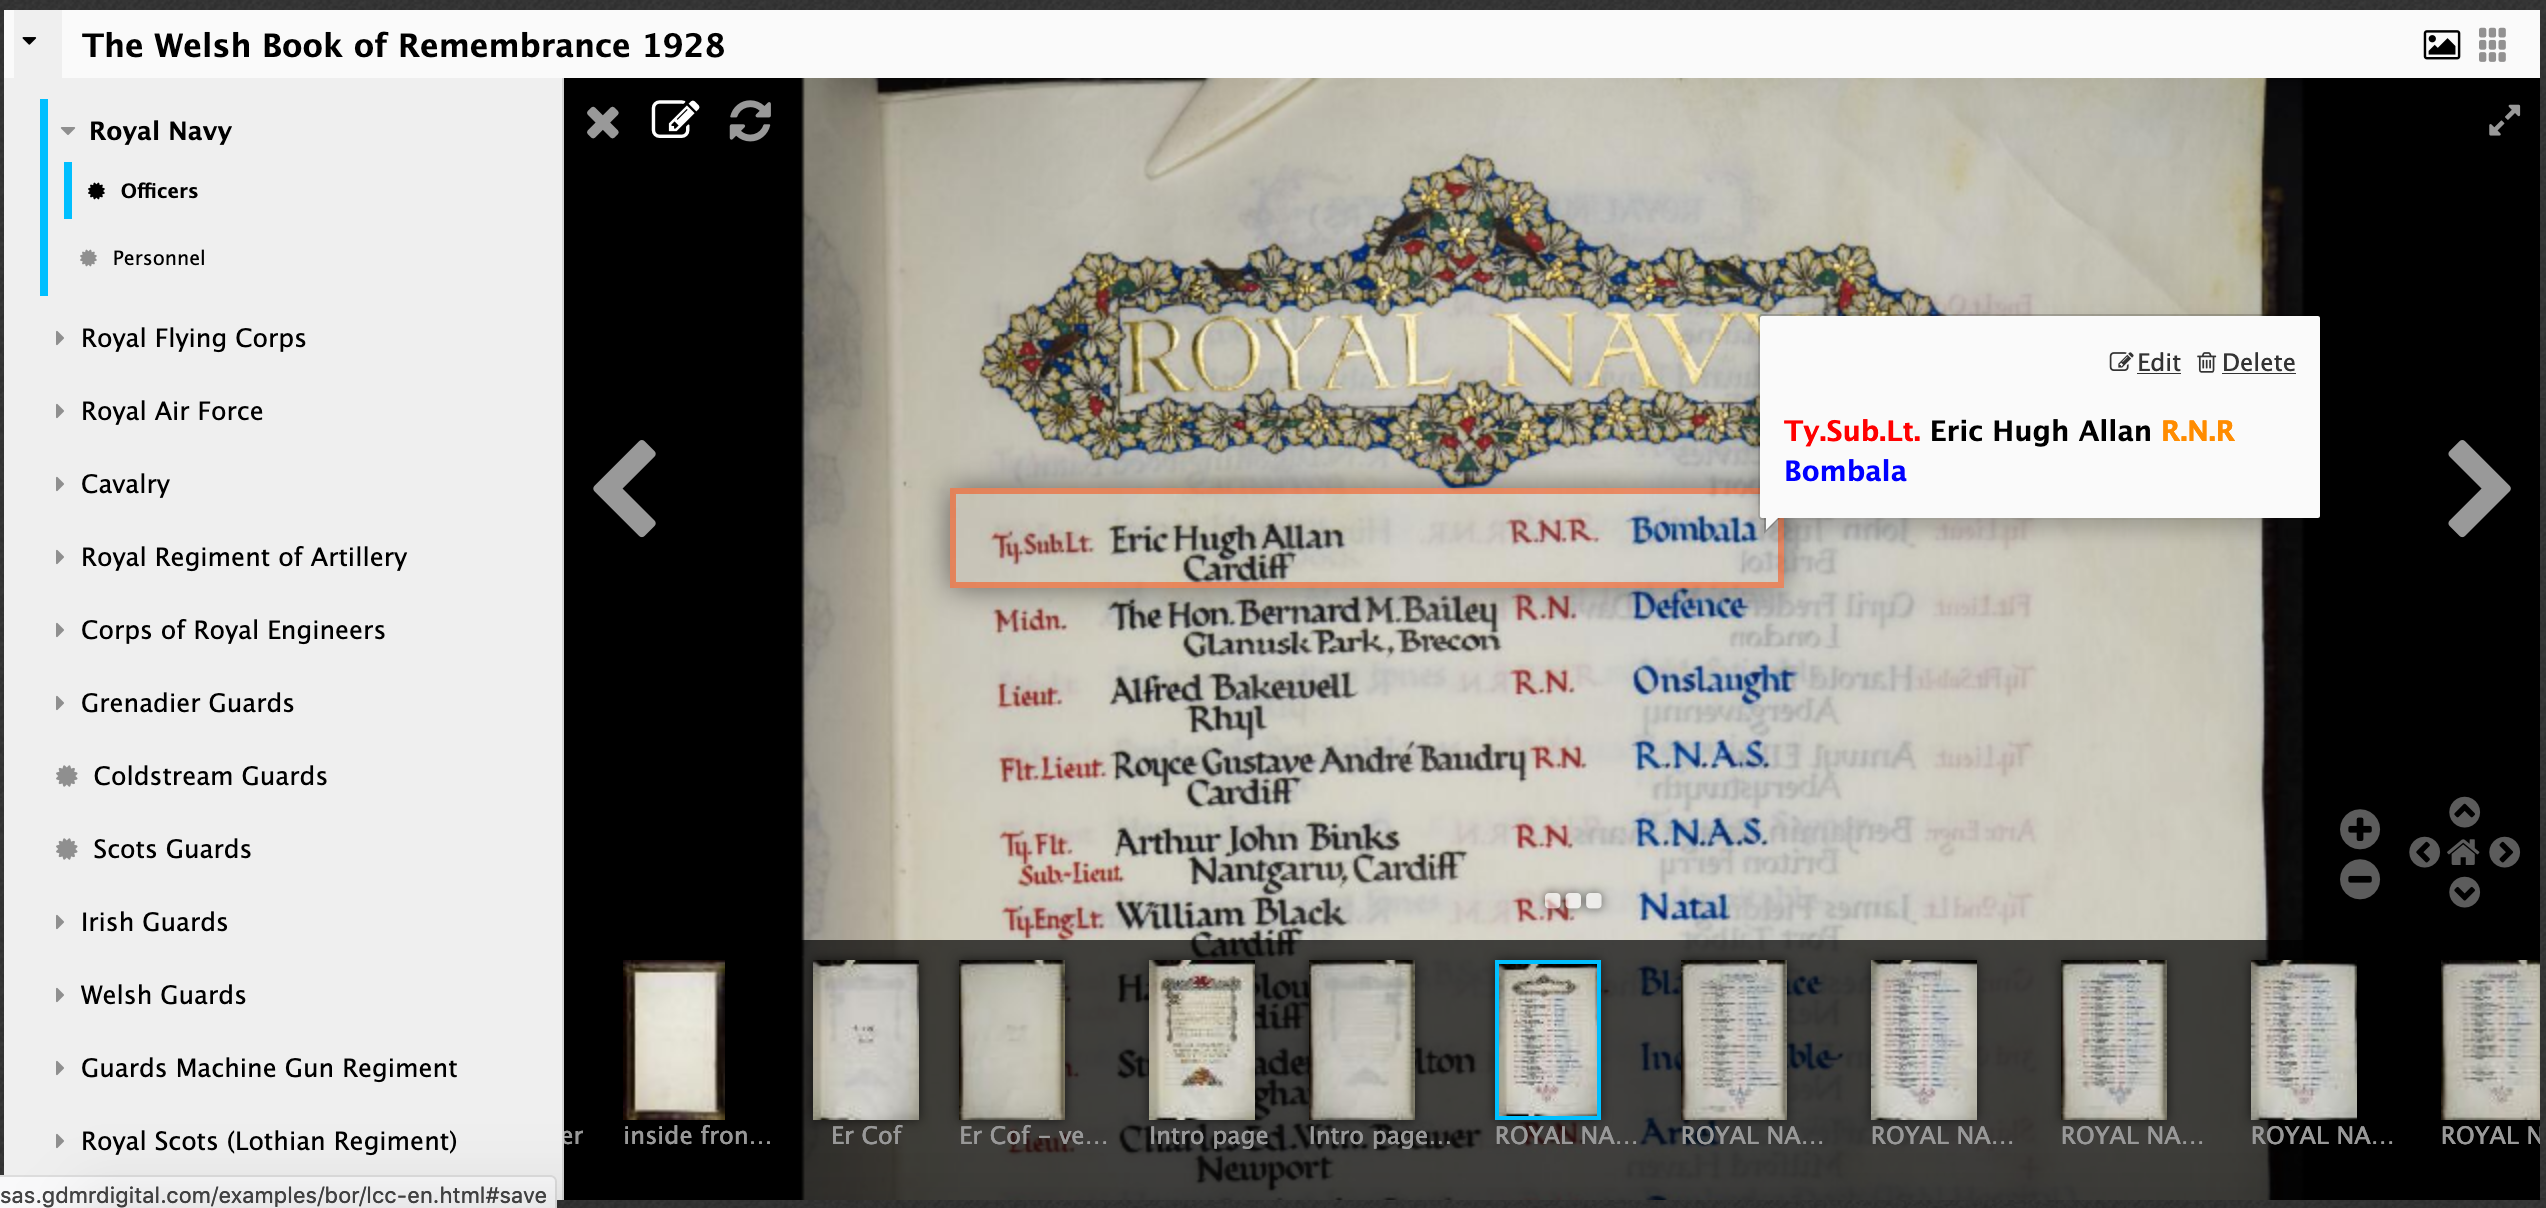 The Welsh Book of Remembrance 1928
Royal Navy
Officers
Personnel
Royal Flying Corps
Royal Air Force
Cavalry
Royal Regiment of Artillery
Corps of Royal Engineers
Grenadier Guards
Coldstream Guards
Scots Guards
Irish Guards
Welsh Guards
Guards Machine Gun Regiment
Royal Scots (Lothian Regiment)
sas.gdmrdigital.com/examples/bor/lcc-en.html#save
ROYAL NAV
Edit Delete
Ty.Sub.Lt. Eric Hugh Allan R.N.R
Bombala
Ty.Sub.Lt. Eric Hugh Allan R.N.R. Bombala
Cardiff
Midn. The Hon. Bernard M. Bailey R.N. Defence
Glanusk Park, Brecon
Lieut. Alfred Bakewell R.N. Onslaught
Rhyl
Flt. Lieut. Royce Gustave André Baudry R.N. R.N.A.S.
Cardiff
Ty. Flt. Arthur John Binks R.N. R.N.A.S.
Sub-Lieut. Nantgarw, Cardiff
Ty.Eng.Lt. William Black R.N. Natal
Cardiff
Lieut. Charles Ed. Wm. Brewer R.N.
Newport
er
inside fron...
Er Cof
Er Cof - ve...
Intro page
Intro page...
ROYAL NA...
ROYAL NA...
ROYAL NA...
ROYAL NA...
ROYAL NA...
ROYAL N